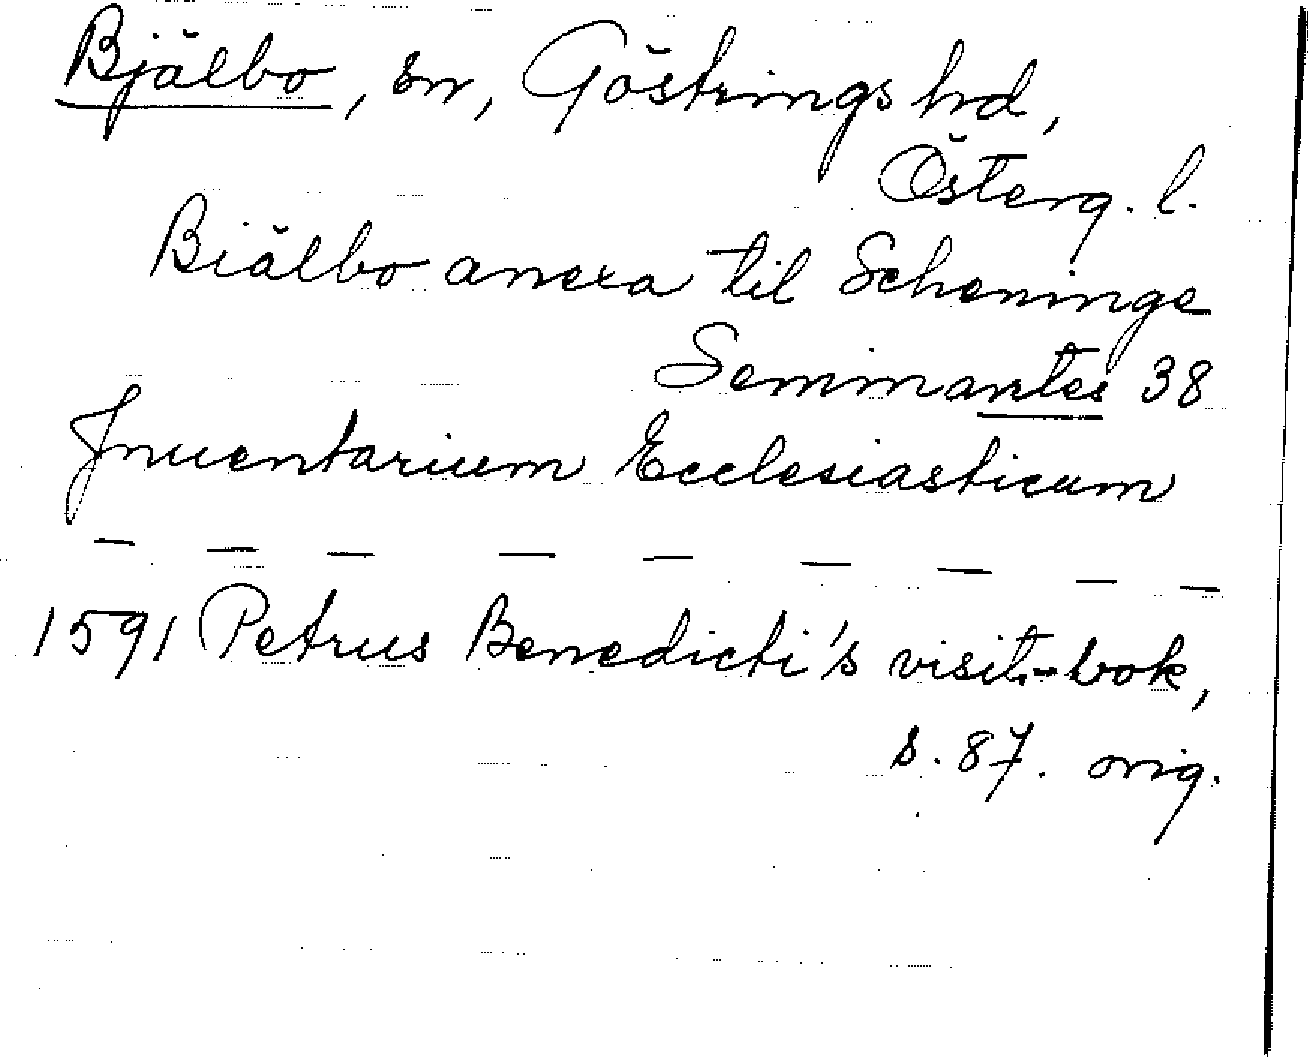 Bjälbo, sn, Göstrings hd,
Österg. l.
Biälbo anexa til Scheninge
Seminantes 38
Inuentarium Ecclesiasticum
— — — — — — — — —
1591 Petrus Benedicti's visit.-bok,
s. 87. orig.